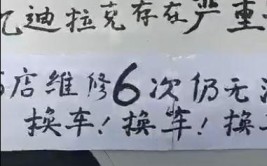 亿迪拉克存在严重
店维修6次仍无法
换车！换车！换